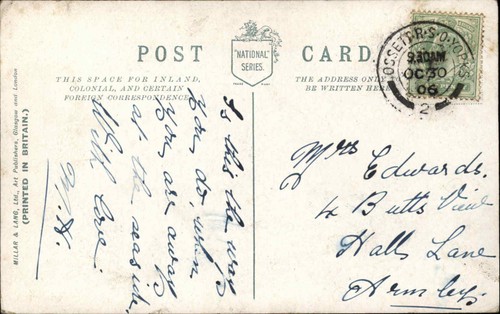 POST CARD
"NATIONAL"
SERIES.
THIS SPACE FOR INLAND,
COLONIAL, AND CERTAIN
FOREIGN CORRESPONDENCE.
THE ADDRESS ONLY
BE WRITTEN HERE
OSSETT R.S.O. YORKS
9.30AM
OC 30
06
2
Is this the way
you do, when
you are away
at the seaside.
With love.
Mrs Edwards.
4 Butts View
Halls Lane
Armley.
MILLAR & LANG, Ltd., Art Publishers, Glasgow and London
(PRINTED IN BRITAIN.)